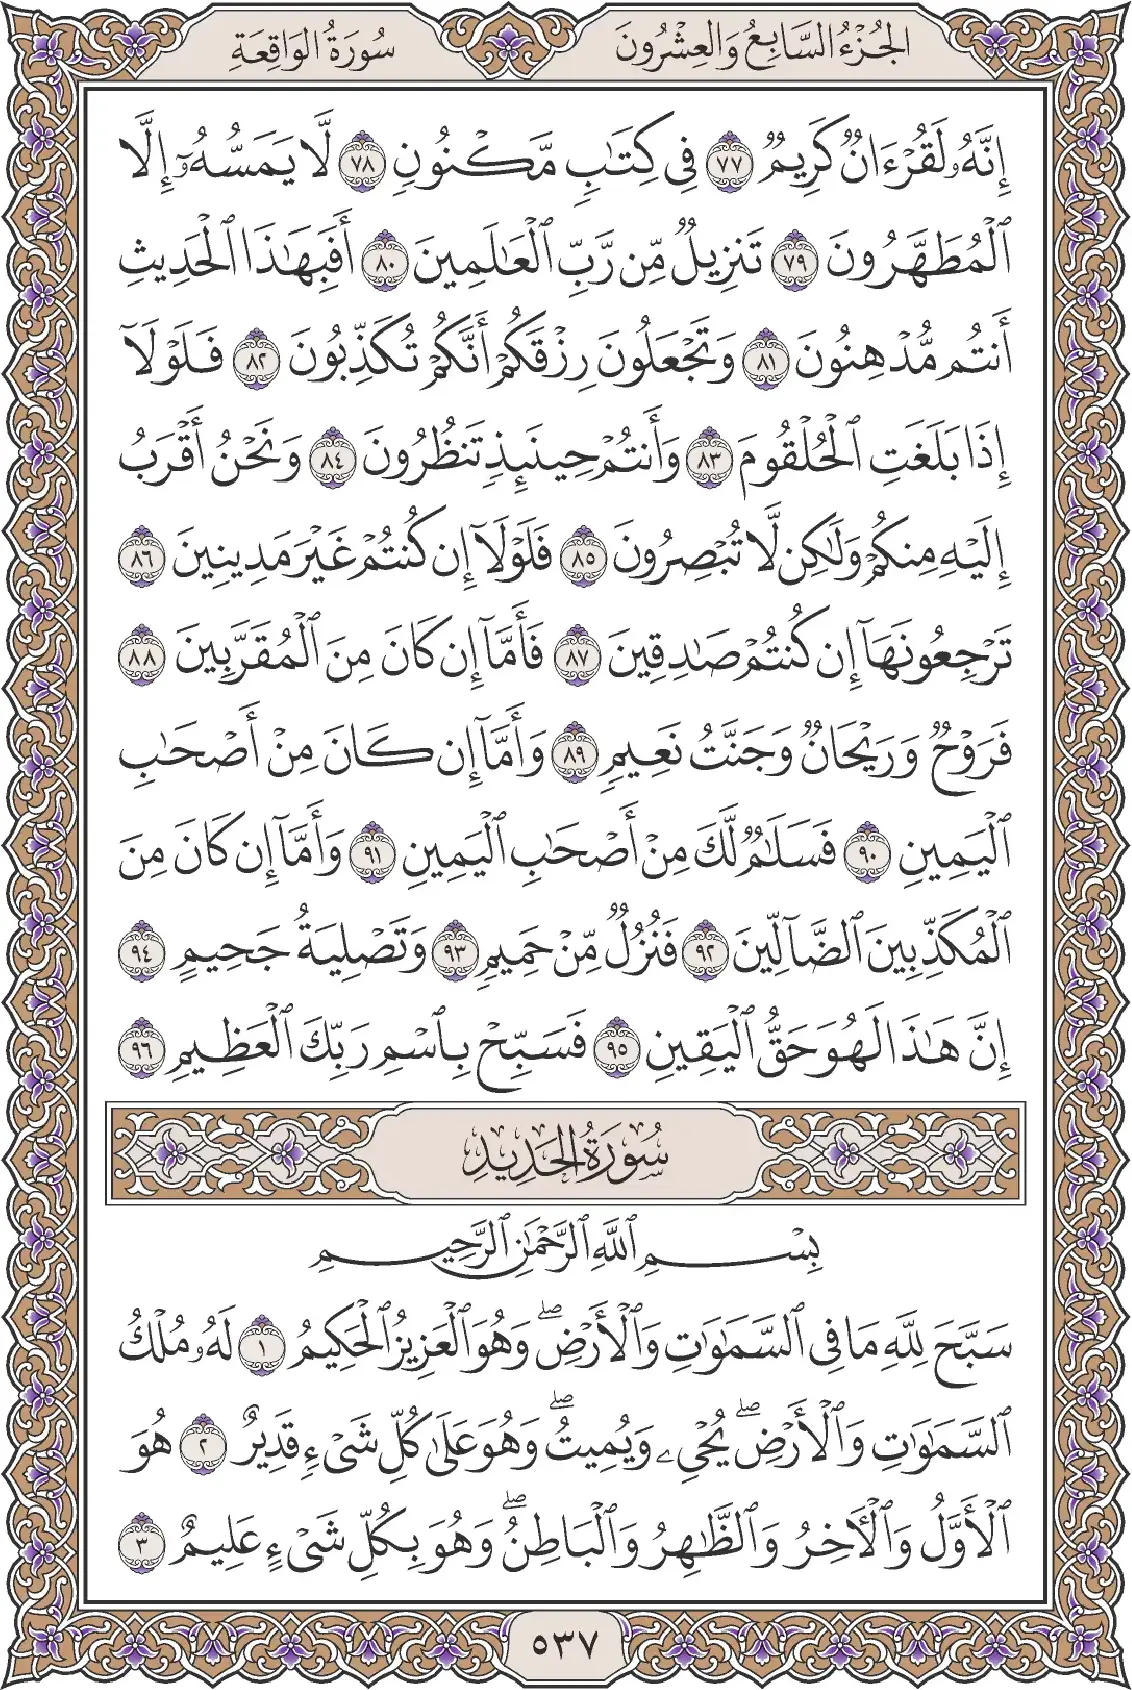 الجُزْءُ السَّابِعُ وَالعِشْرُونَ
سُورَةُ الوَاقِعَةِ
إِنَّهُۥ لَقُرْءَانٌ كَرِيمٌ ٧٧ فِى كِتَٰبٍ مَّكْنُونٍ ٧٨ لَّا يَمَسُّهُۥٓ إِلَّا
ٱلْمُطَهَّرُونَ ٧٩ تَنزِيلٌ مِّن رَّبِّ ٱلْعَٰلَمِينَ ٨٠ أَفَبِهَٰذَا ٱلْحَدِيثِ
أَنتُم مُّدْهِنُونَ ٨١ وَتَجْعَلُونَ رِزْقَكُمْ أَنَّكُمْ تُكَذِّبُونَ ٨٢ فَلَوْلَآ
إِذَا بَلَغَتِ ٱلْحُلْقُومَ ٨٣ وَأَنتُمْ حِينَئِذٍ تَنظُرُونَ ٨٤ وَنَحْنُ أَقْرَبُ
إِلَيْهِ مِنكُمْ وَلَٰكِن لَّا تُبْصِرُونَ ٨٥ فَلَوْلَآ إِن كُنتُمْ غَيْرَ مَدِينِينَ ٨٦
تَرْجِعُونَهَآ إِن كُنتُمْ صَٰدِقِينَ ٨٧ فَأَمَّآ إِن كَانَ مِنَ ٱلْمُقَرَّبِينَ ٨٨
فَرَوْحٌ وَرَيْحَانٌ وَجَنَّتُ نَعِيمٍ ٨٩ وَأَمَّآ إِن كَانَ مِنْ أَصْحَٰبِ
ٱلْيَمِينِ ٩٠ فَسَلَٰمٌ لَّكَ مِنْ أَصْحَٰبِ ٱلْيَمِينِ ٩١ وَأَمَّآ إِن كَانَ مِنَ
ٱلْمُكَذِّبِينَ ٱلضَّآلِّينَ ٩٢ فَنُزُلٌ مِّنْ حَمِيمٍ ٩٣ وَتَصْلِيَةُ جَحِيمٍ ٩٤
إِنَّ هَٰذَا لَهُوَ حَقُّ ٱلْيَقِينِ ٩٥ فَسَبِّحْ بِٱسْمِ رَبِّكَ ٱلْعَظِيمِ ٩٦
سُورَةُ الحَدِيدِ
بِسْمِ ٱللَّهِ ٱلرَّحْمَٰنِ ٱلرَّحِيمِ
سَبَّحَ لِلَّهِ مَا فِى ٱلسَّمَٰوَٰتِ وَٱلْأَرْضِ ۖ وَهُوَ ٱلْعَزِيزُ ٱلْحَكِيمُ ١ لَهُۥ مُلْكُ
ٱلسَّمَٰوَٰتِ وَٱلْأَرْضِ ۖ يُحْىِۦ وَيُمِيتُ ۖ وَهُوَ عَلَىٰ كُلِّ شَىْءٍ قَدِيرٌ ٢ هُوَ
ٱلْأَوَّلُ وَٱلْءَاخِرُ وَٱلظَّٰهِرُ وَٱلْبَاطِنُ ۖ وَهُوَ بِكُلِّ شَىْءٍ عَلِيمٌ ٣
٥٣٧